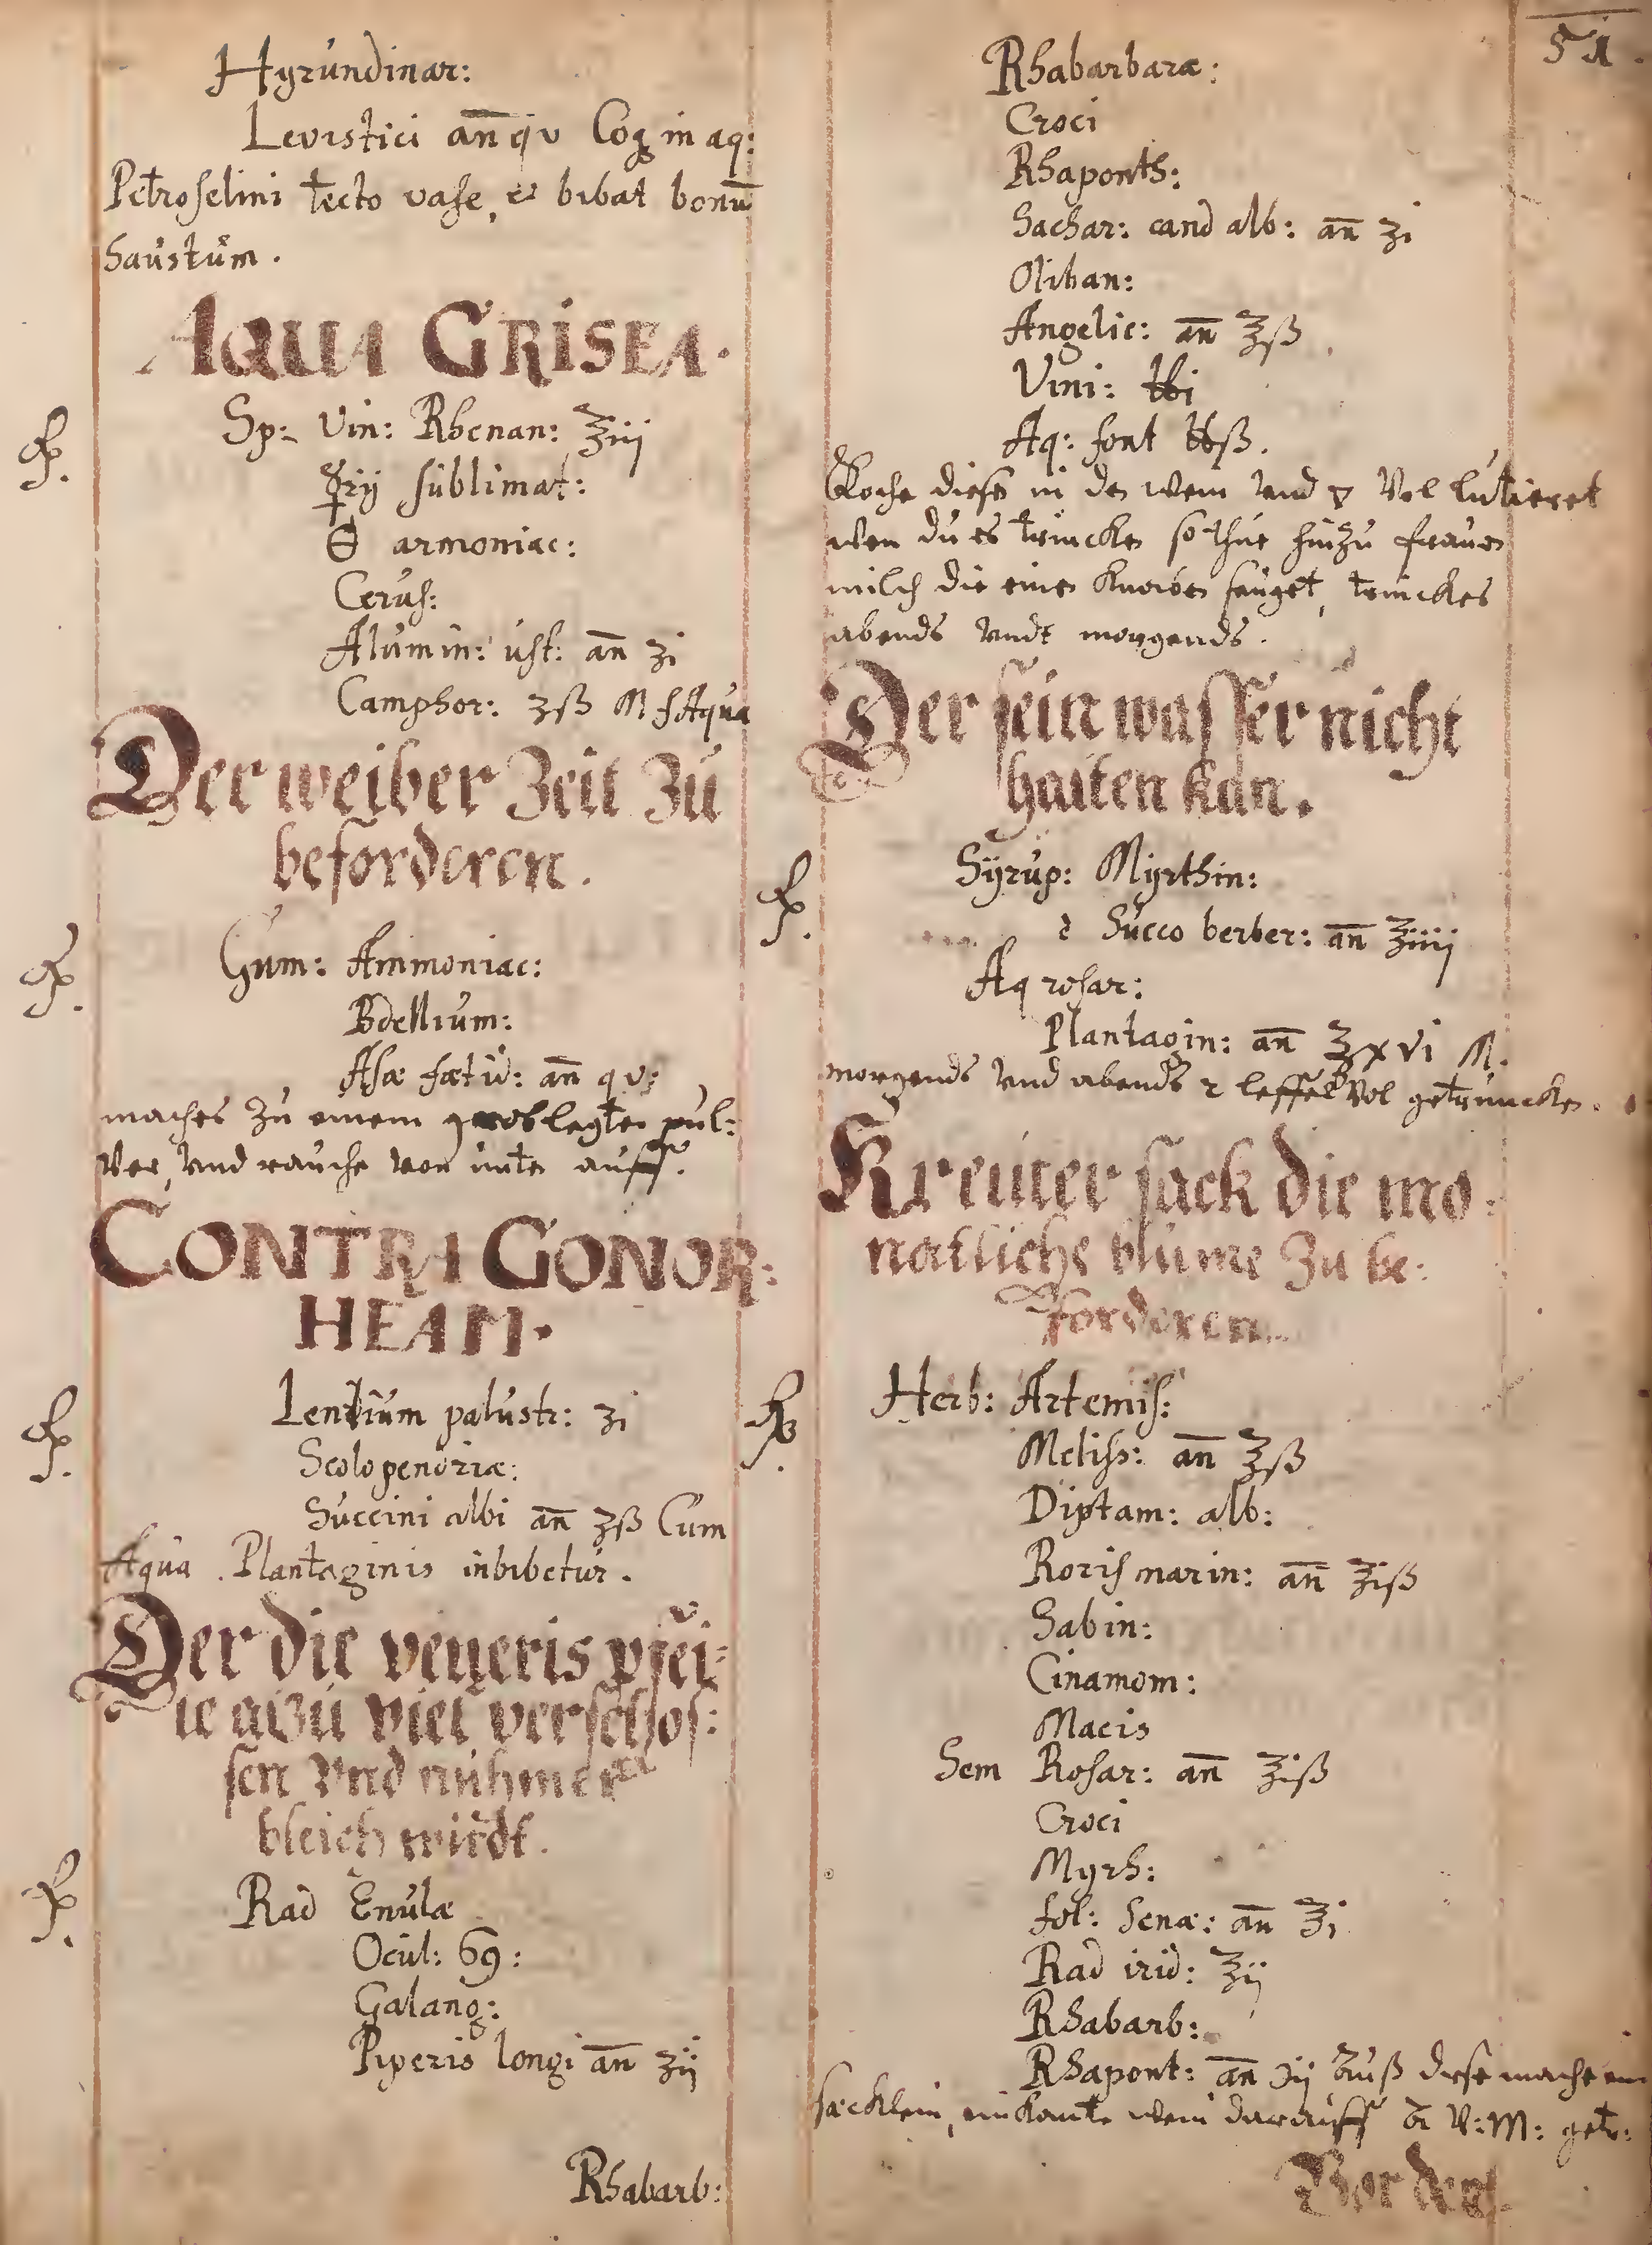 Hyrundinar:
Levistici an̄ qv Coq in aq:
Petroselini tecto vase, et bibat bonū
haustum.
AQUA GRISEA.
℞. Sp: Vin: Rhenan: ℥iij
☿rij sublimat:
🜔 armoniac:
Cerus:
Alumin: ust: an̄ ʒi
Camphor: ʒß M f Aqua
Der weiber Zeit Zu
beforderen.
℞. Gum: Ammoniac:
Bdellium:
Asæ fœtid: an̄ qv:
maches Zu einem pul:
ver, und rauche von unten auff.
CONTRA GONOR:
HEAM.
℞. Lentium palustr: ʒi
Scolopendriæ:
Succini albi an̄ ʒß Cum
Aqua Plantaginis inbibetur.
Der die veneris pfei:
le alzu viel verschos:
sen Vnd nuhmer
bleich wirdt.
℞. Rad Enulæ
Ocul: 69:
Galang:
Piperis longi an̄ ʒij
Rhabarb:
51.
Rhabarbaræ:
Croci
Rhaponth:
Sachar: cand alb: an̄ ʒi
Oliban:
Angelic: an̄ ℥ß
Vini: ℔i
Aq: font ℔ß.
Koche diesen in den wein Vnd Vol lutieret
wen du es trincken so thue hinzu frauen
milch die einen knaben sauget, trinckes
abends Undt morgends.
Der sein wasser nicht
halten kan.
℞. Syrup: Myrthin:
è Succo berber: an̄ ℥iiij
Aq rosar:
Plantagin: an̄ ℥xvi M.
morgends Vnd abends 2 leffel Vol getruncken.
Kreuter sack die mo:
natliche blume Zu be:
forderen.
℞. Herb: Artemis:
Meliss: an̄ ℥ß
Diptam: alb:
Rorismarin: an̄ ℥iß
Sabin:
Cinamom:
Macis
Sem Rosar: an̄ ℥iß
Croci
Myrh:
fol: Senæ: an̄ ℥i
Rad irid: ℥ij
Rhabarb:
Rhapont: an̄ ʒij Auß diese mache ein
sæcklein, ein kante wein darauff A: V: M: getr:
Vor den